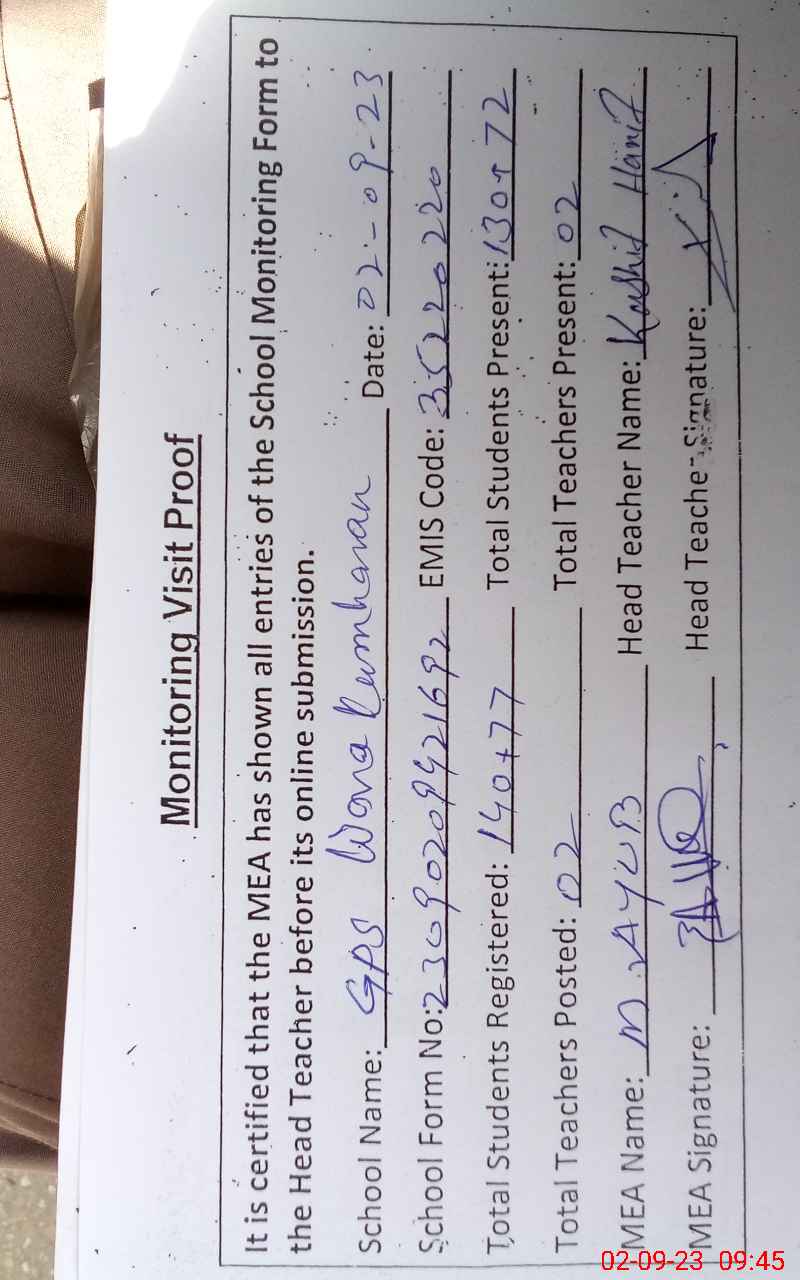 Monitoring Visit Proof
It is certified that the MEA has shown all entries of the School Monitoring Form to
the Head Teacher before its online submission.
School Name: GPS Wana Kumharan Date: 02-09-23
School Form No: 23090209421692 EMIS Code: 35220220
Total Students Registered: 140+77 Total Students Present: 130+72
Total Teachers Posted: 02 Total Teachers Present: 02
MEA Name: M. AYUB Head Teacher Name: Kashif Hanif
MEA Signature: Head Teacher Signature:
02-09-23 09:45